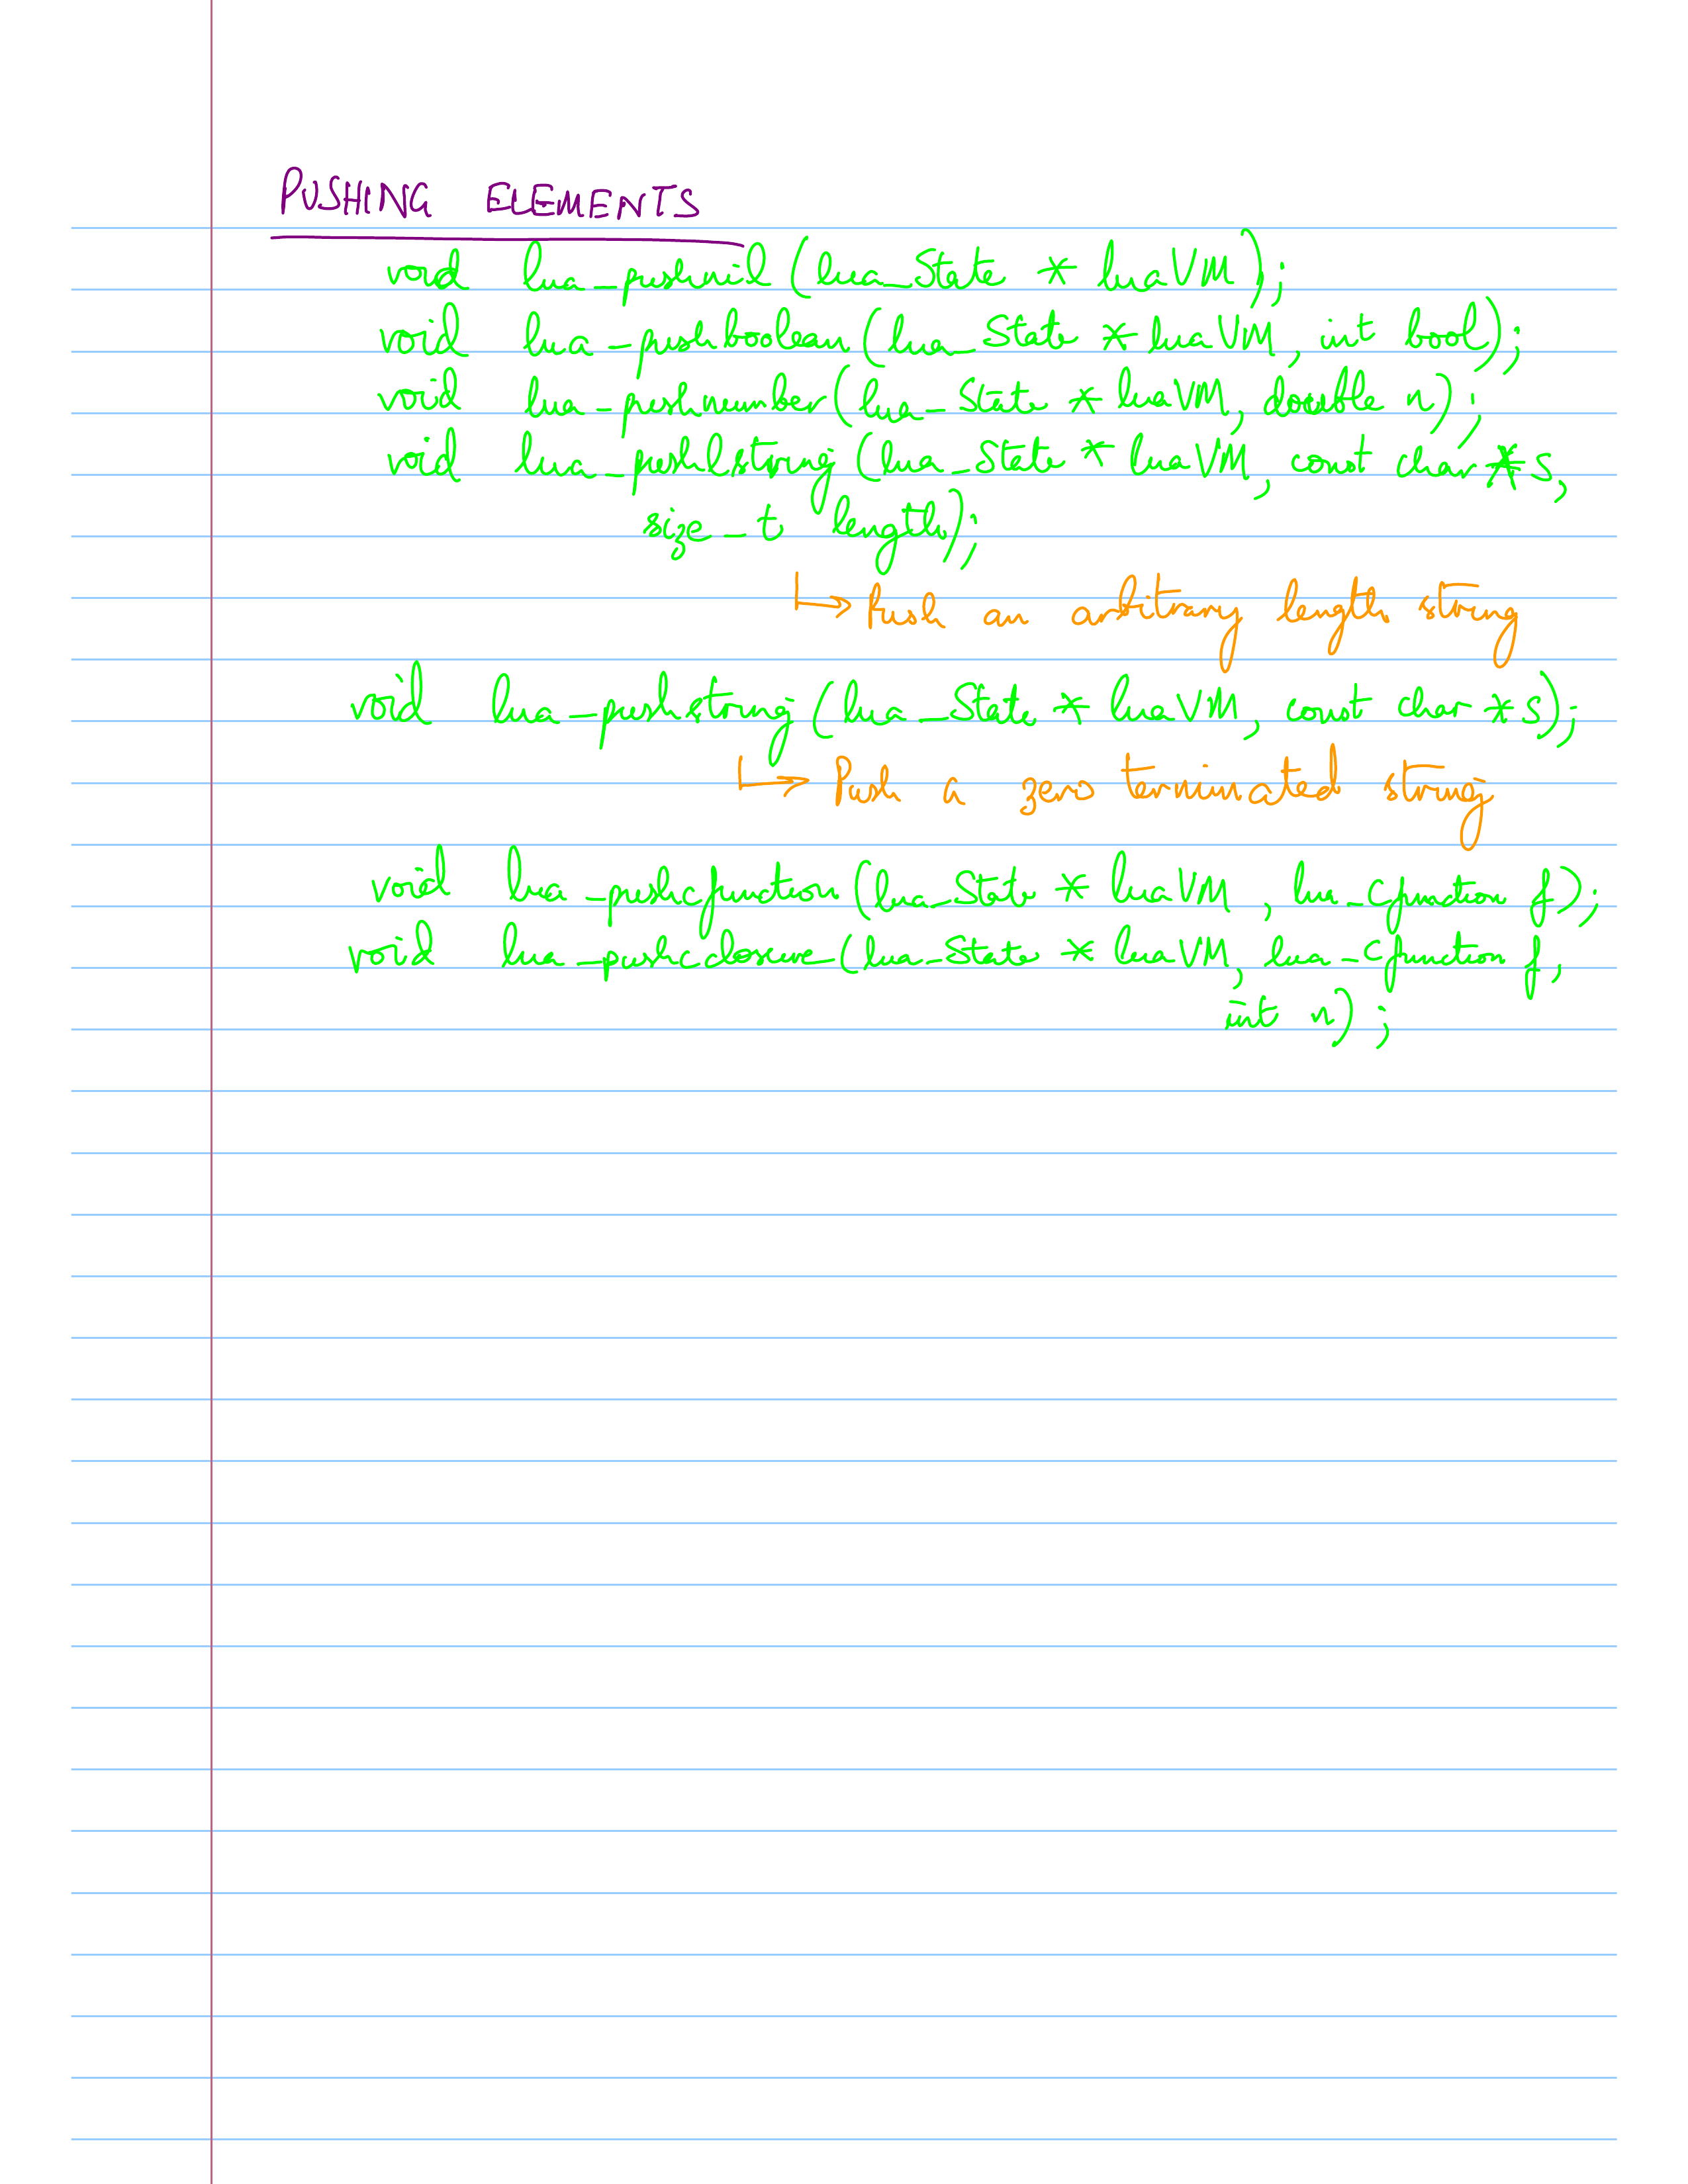 PUSHING ELEMENTS
void lua_pushnil (lua_State * luaVM);
void lua_pushboolean (lua_State * luaVM, int bool);
void lua_pushnumber (lua_State * luaVM, double n);
void lua_pushlstring (lua_State * luaVM, const char * s,
size_t length);
↳ Push an arbitrary length string
void lua_pushstring (lua_State * luaVM, const char * s);
↳ Push a zero terminated string
void lua_pushcfunction (lua_State * luaVM, lua_Cfunction f);
void lua_pushcclosure (lua_State * luaVM, lua_Cfunction f,
int n);